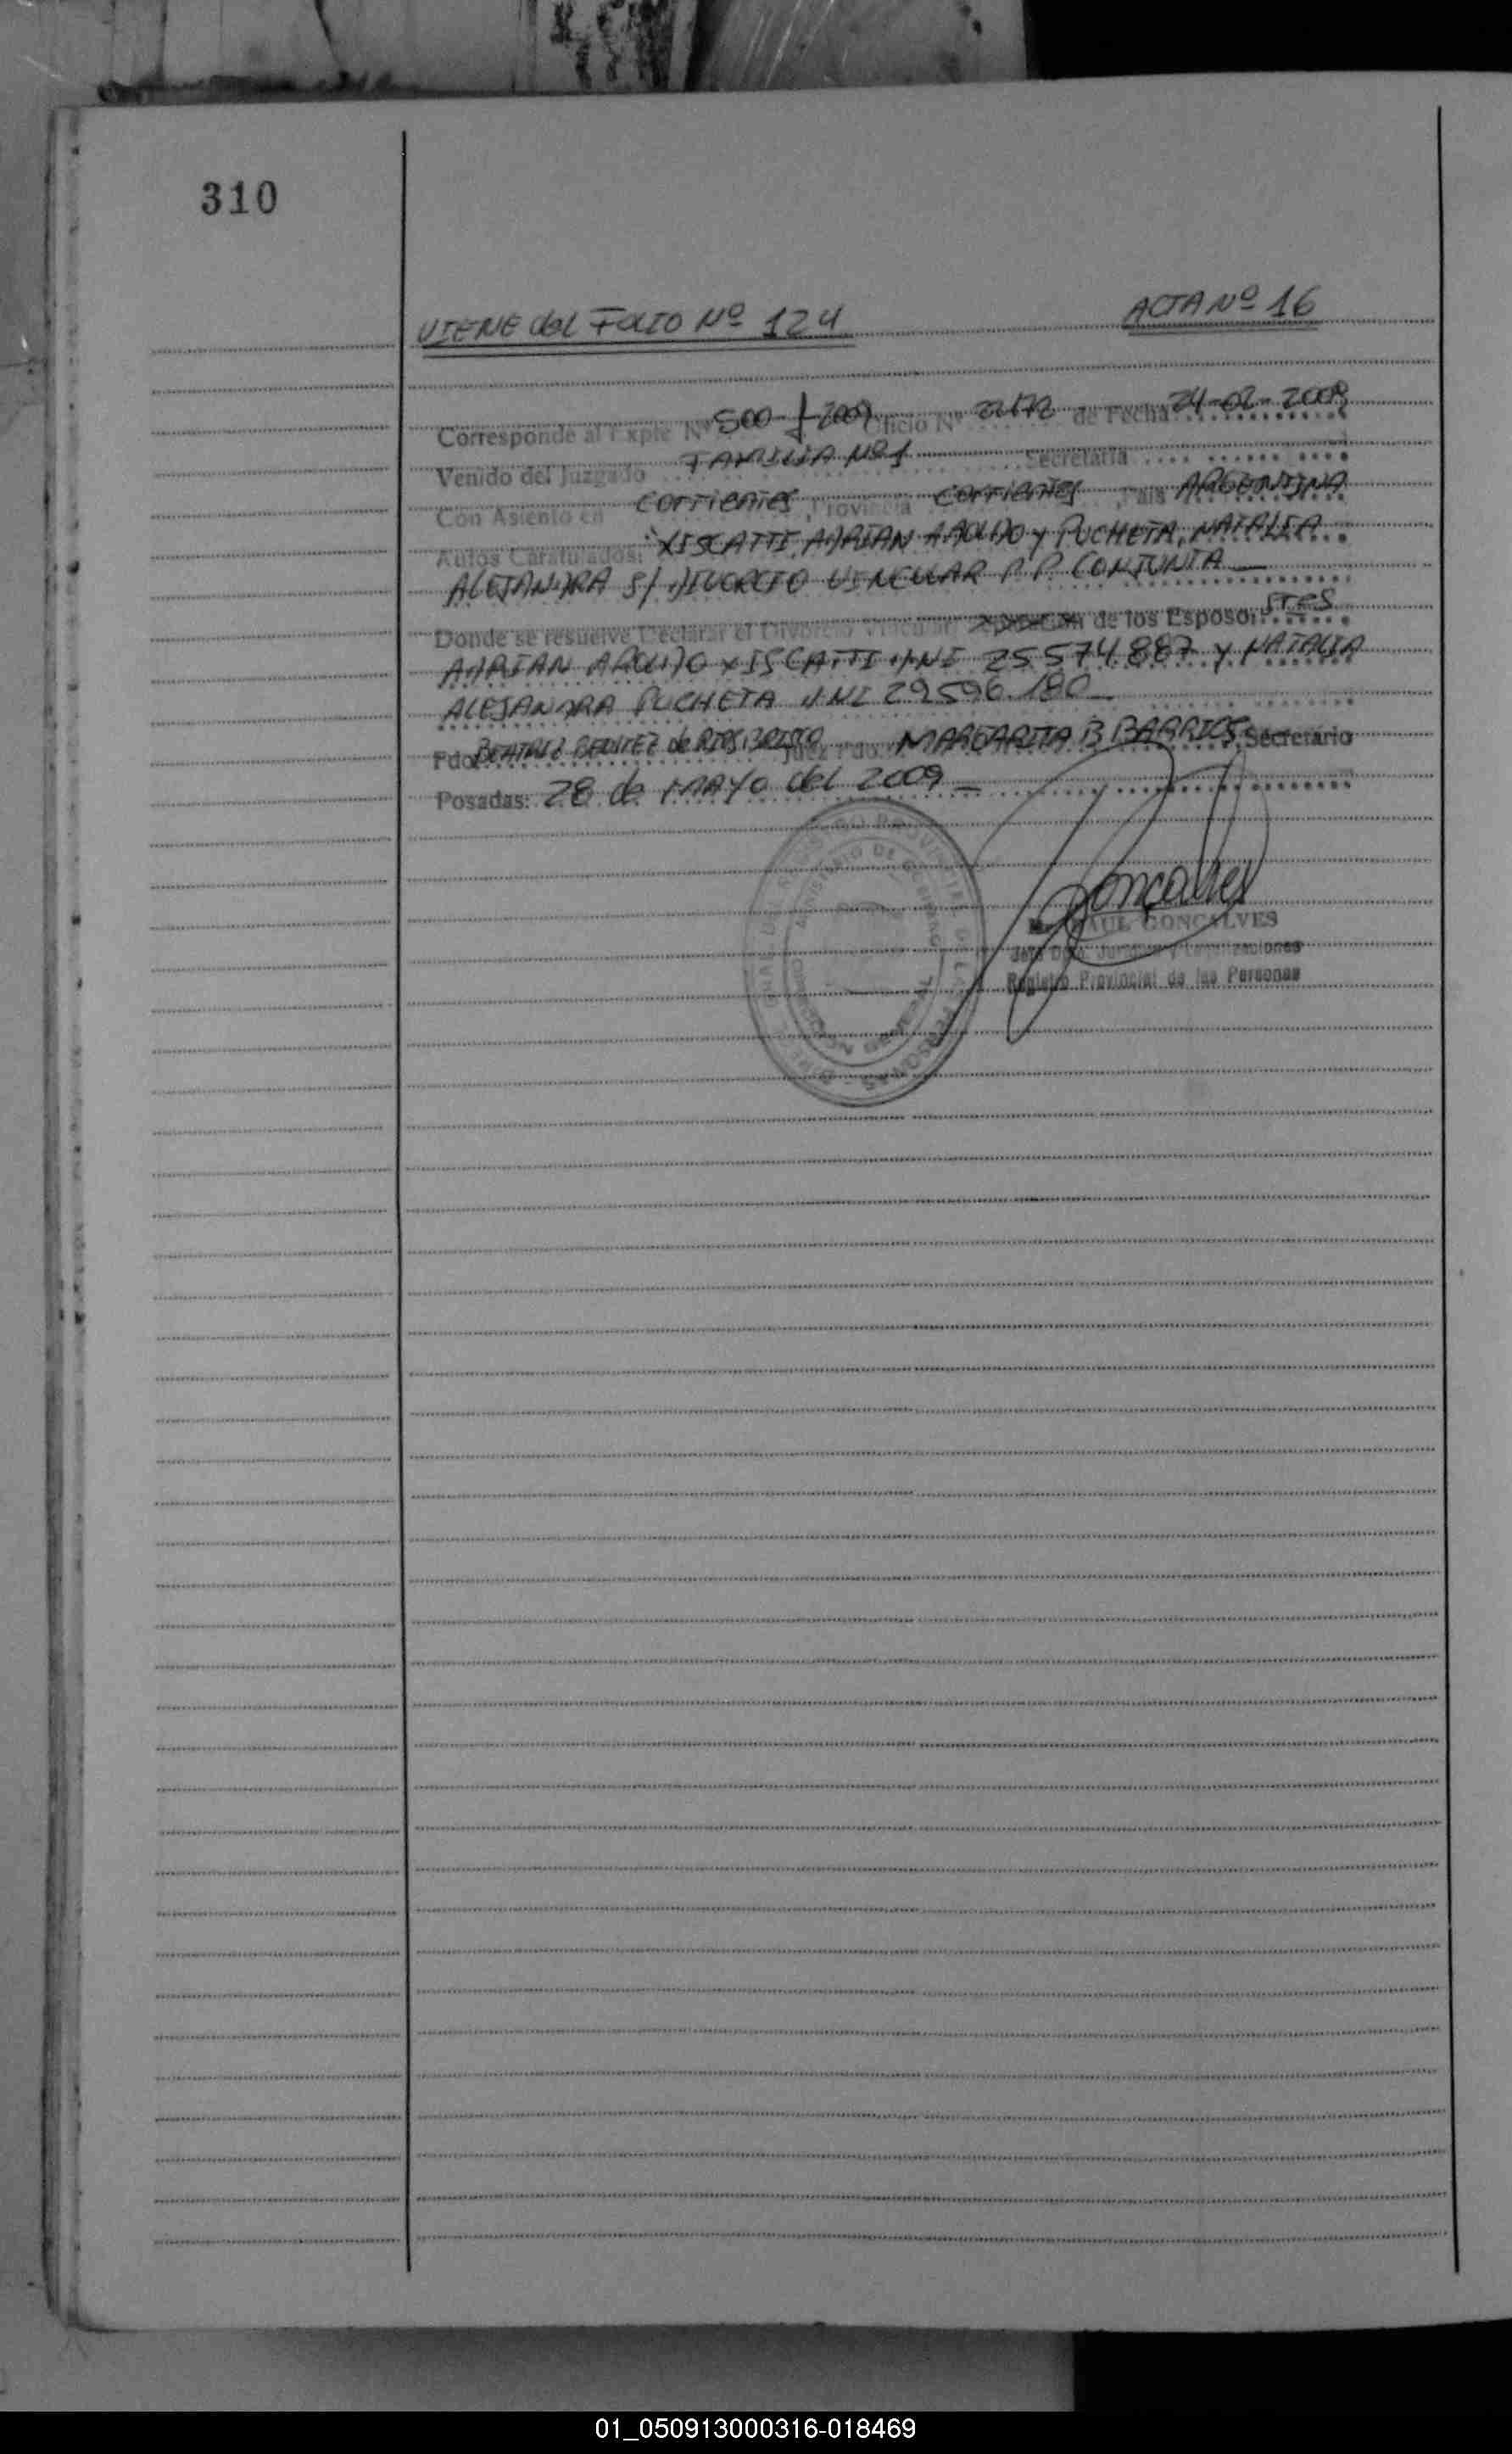 310
VIENE del FOLIO Nº 124 ACTA Nº 16
Corresponde al Expte Nº 500-f-2009 Oficio Nº de Fecha 24-02-2009
Venido del Juzgado FAMILIA Nº1 Secretaria
Con Asiento en Corrientes Provincia Corrientes, Pais ARGENTINA
Autos Caratulados: XISCATTI, ADRIAN AROLDO y PUCHETA, NATALIA
ALEJANDRA S/ DIVORCIO VINCULAR P. P. CONJUNTA
Donde se resuelve Declarar el Divorcio Vincular de los Esposo: STES
ADRIAN AROLDO XISCATTI DNI 25.574.887 y NATALIA
ALEJANDRA PUCHETA DNI 29.596.180
Fdo: BEATRIZ BENITEZ de RIOS Juez Fdo. MARGARITA B BARRIOS, Secretario
Posadas: 28 de MAYO del 2009
Goncalves
RAUL GONCALVES
Registro Provincial de las Personas
01_050913000316-018469